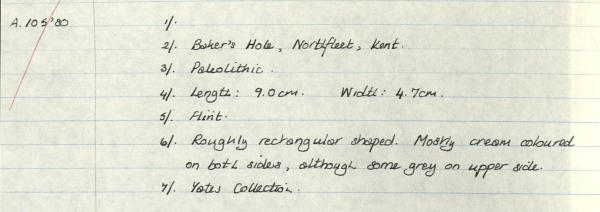 A.105'80 1/.
2/. Baker's Hole, Northfleet, Kent.
3/. Paleolithic.
4/. Length: 9.0cm. Width: 4.7cm.
5/. Flint.
6/. Roughly rectangular shaped. Mostly cream coloured
on both sides, although some grey on upper side.
7/. Yates Collection.